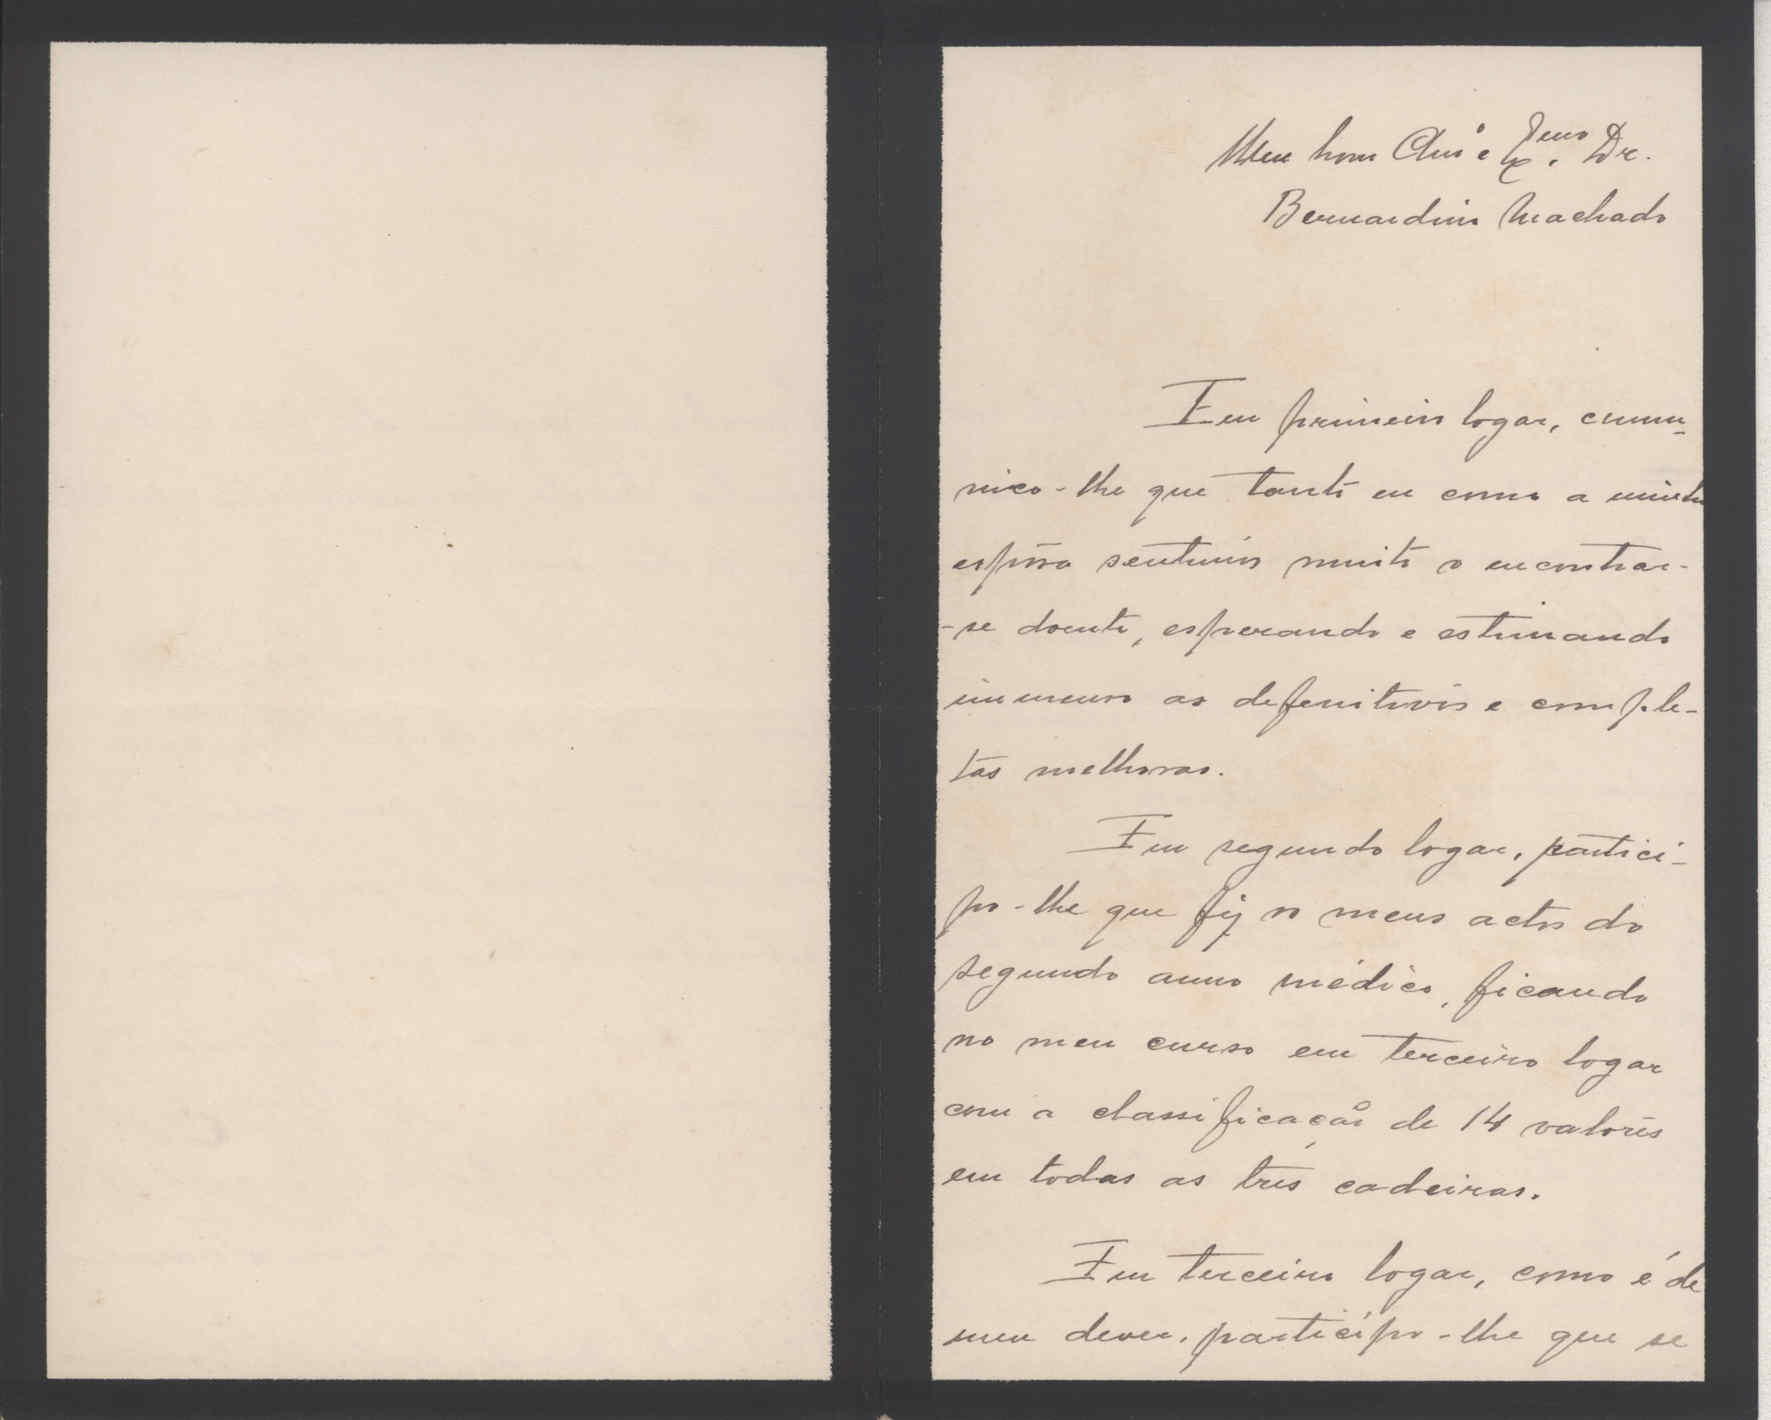 Meu bom Amo e Exmo. Dr.
Bernardino Machado
Em primeiro logar, commu-
nico-lhe que tanto eu como a minha
espôsa sentimos muito o encontrar-
-se doente, esperando e estimando
immenso as defenitivas e comple-
tas melhoras.
Em segundo logar, partici-
po-lhe que fiz os meus actos do
segundo anno médico, ficando
no meu curso em terceiro logar
com a classificação de 14 valores
em todas as tres cadeiras.
Em terceiro logar, como é de
meu dever, participo-lhe que se